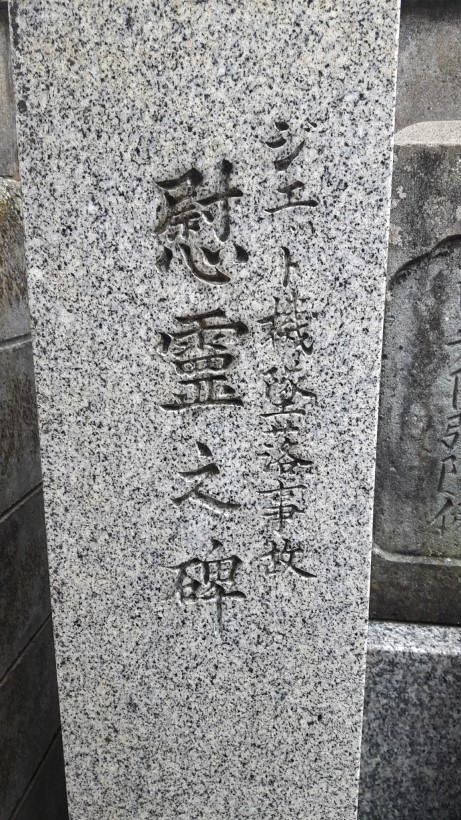 ジエット機墜落事故
慰靈之碑